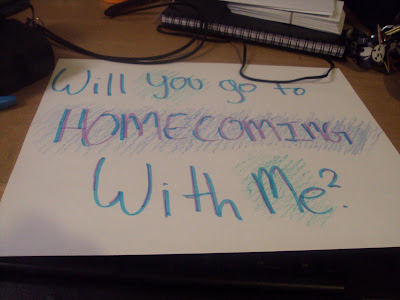 Will you go to
HOMECOMING
With Me?